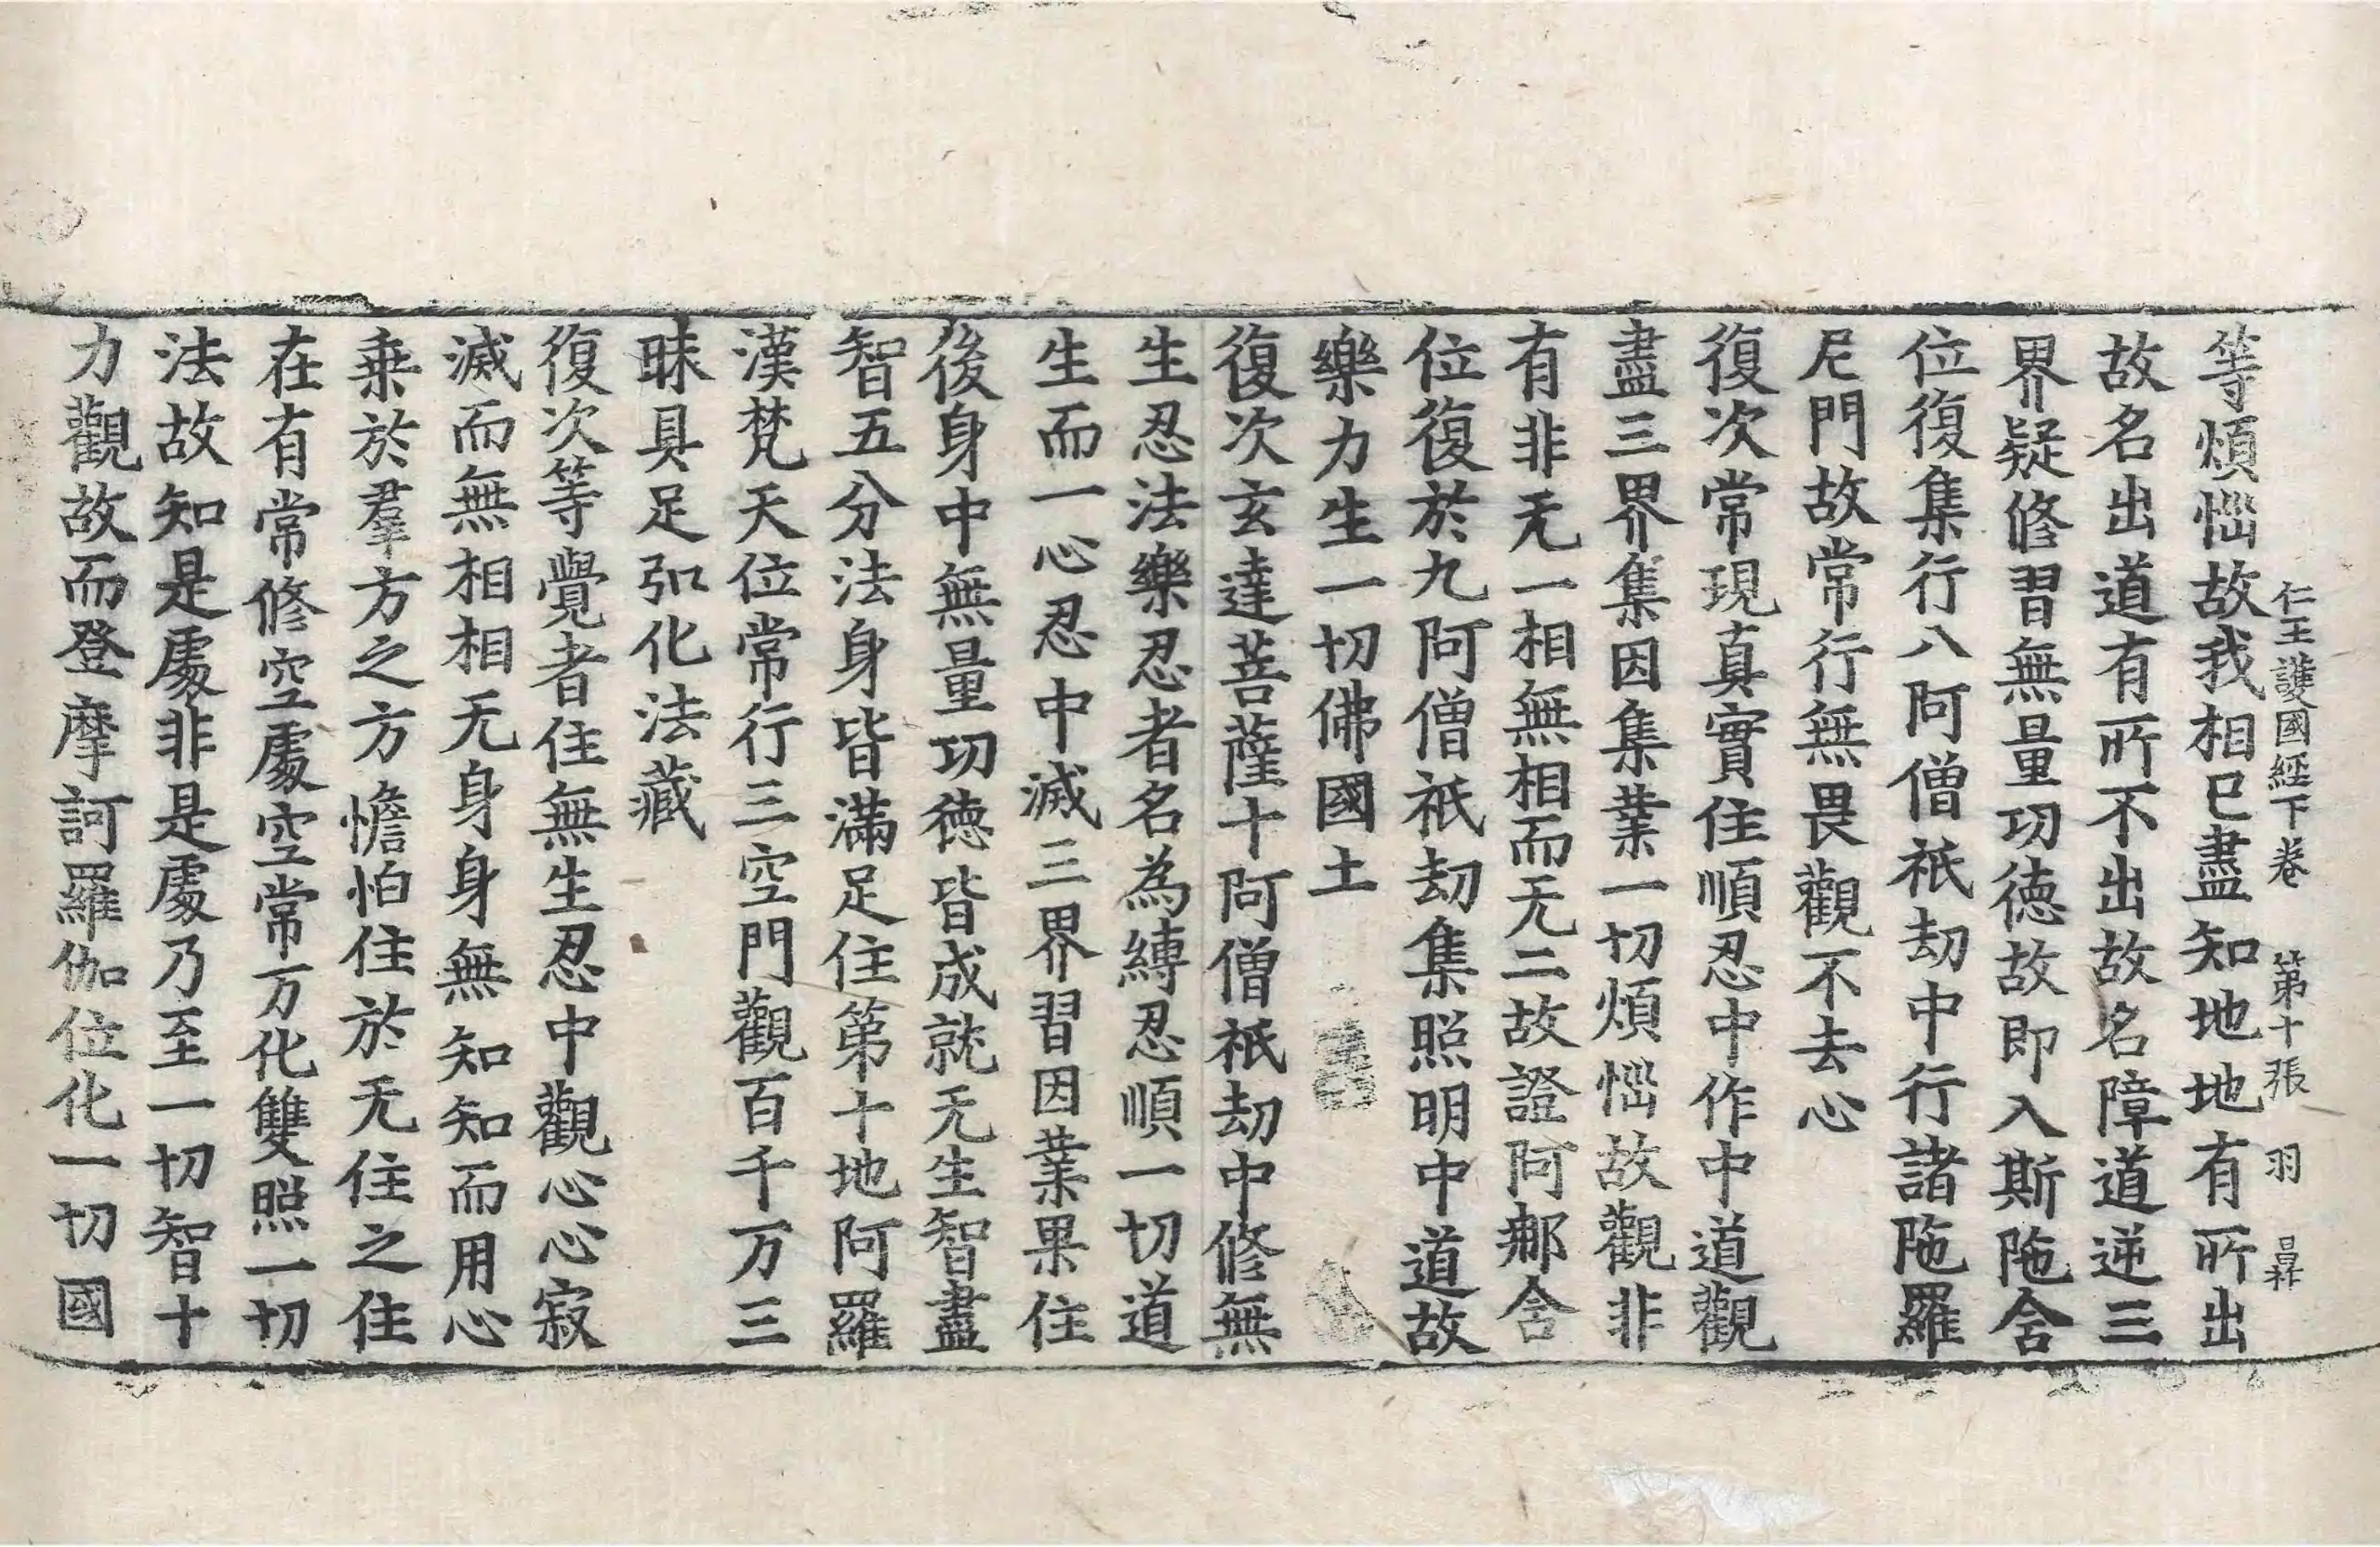 仁王護國經下卷　第十張　羽　
等煩惱故我相已盡知地地有所出
故名出道有所不出故名障道逆三
界疑修習無量功德故即入斯陁含
位復集行八阿僧祇劫中行諸陁羅
尼門故常行無畏觀不去心
復次常現真實住順忍中作中道觀
盡三界集因集業一切煩惱故觀非
有非无一相無相而无二故證阿那含
位復於九阿僧祇劫集照明中道故
樂力生一切佛國土
復次玄達菩薩十阿僧祇劫中修無
生忍法樂忍者名為縛忍順一切道
生而一心忍中滅三界習因業果住
後身中無量功德皆成就无生智盡
智五分法身皆滿足住第十地阿羅
漢梵天位常行三空門觀百千万三
昧具足弘化法藏
復次等覺者住無生忍中觀心心寂
滅而無相相无身身無知知而用心
乗於羣方之方憺怕住於无住之住
在有常修空處空常万化雙照一切
法故知是處非是處乃至一切智十
力觀故而登摩訶羅伽位化一切國